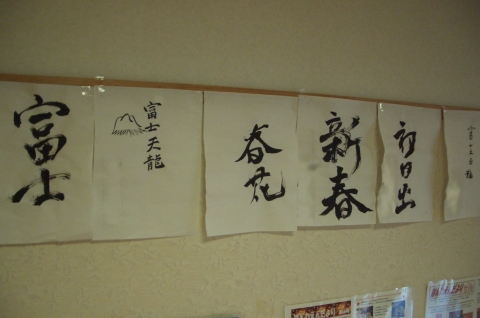 富士
富士天龍
春花
新春
初日出